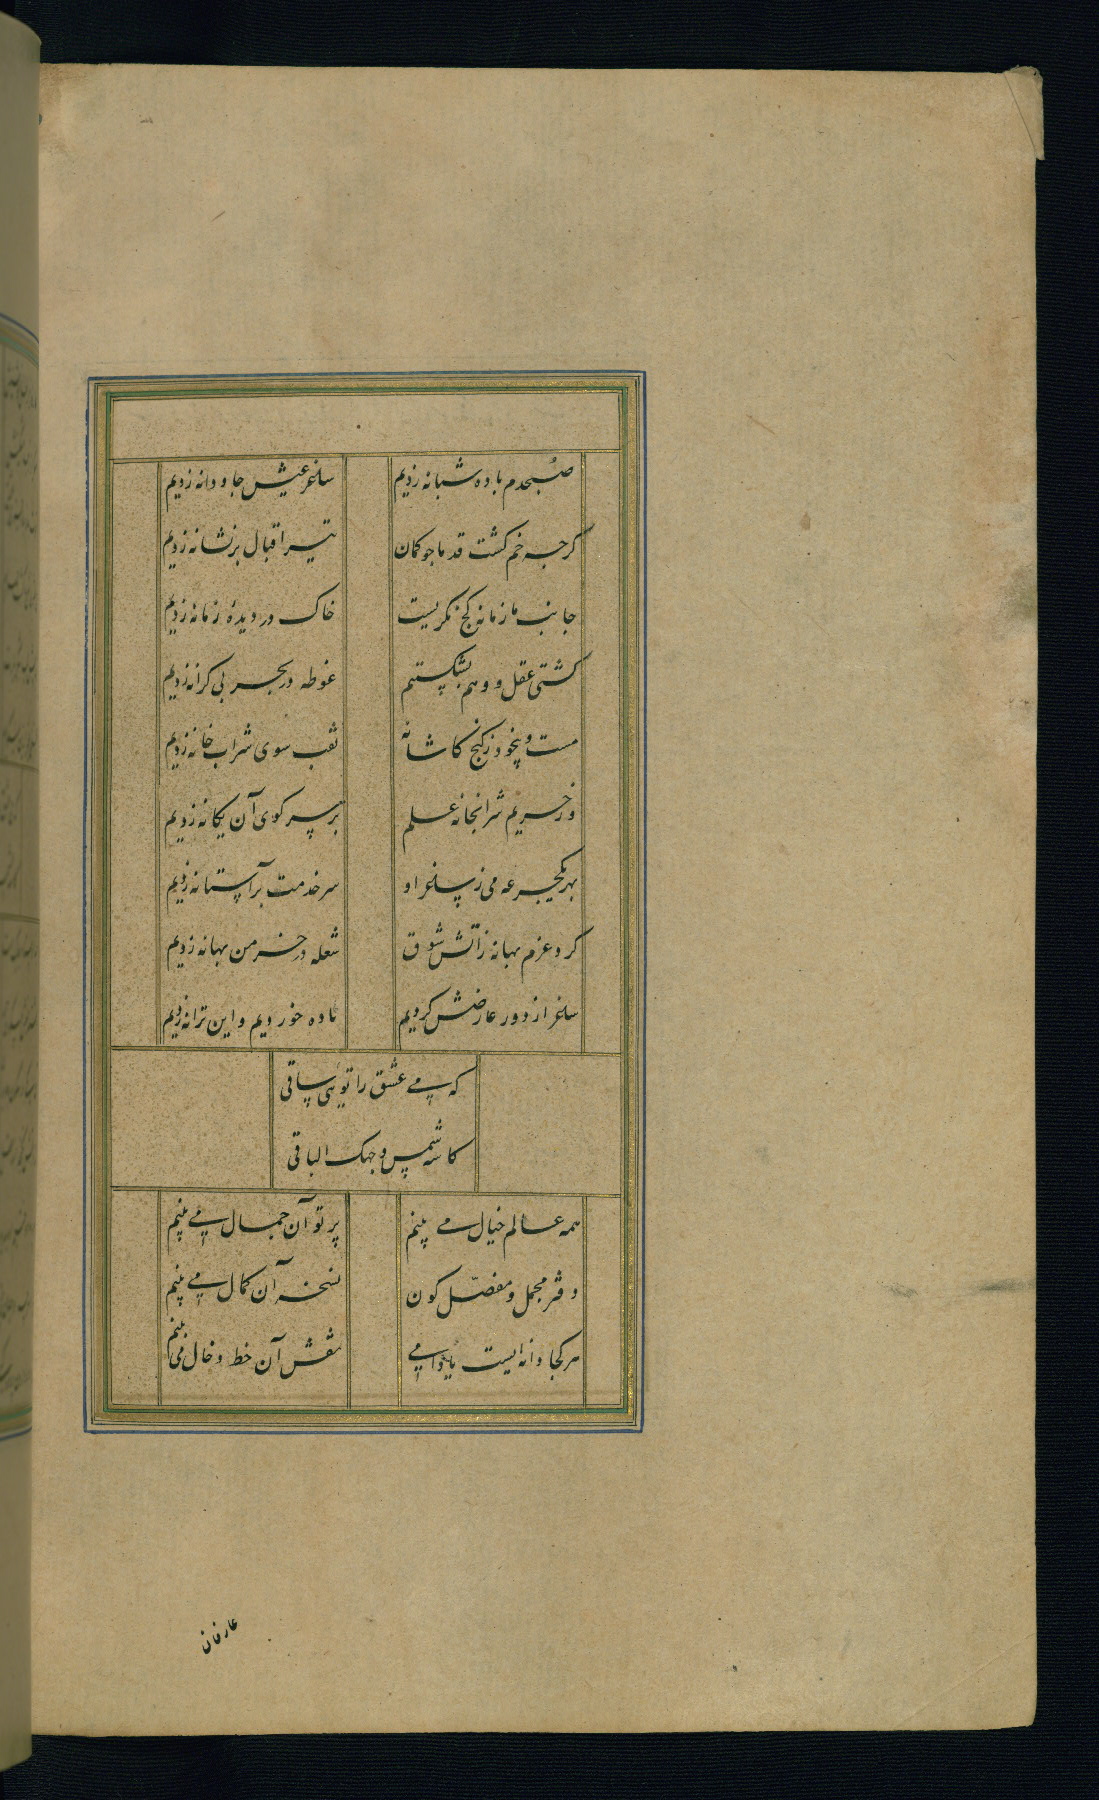 صبحدم باده شبانه زدیم ساغر عیش جاودانه زدیم
کرچه خم کشت قد ما چو کمان تیر اقبال بر نشانه زدیم
جانب ما زمانه کج نکریست خاک در دیدهٔ زمانه زدیم
کشتی عقل و وهم بشکستیم غوطه در بحر بی کرانه زدیم
مست و بیخود ز کنج کاشانه نقب سوی شراب خانه زدیم
وز حریم شرابخانه علم بر سر کوی آن یکانه زدیم
بهر یکجرعه می ز ساغر او سر خدمت بر آستانه زدیم
کرد عزم بهانه ز آتش شوق شعله در خرمن بهانه زدیم
ساغر از دور عارضش کردیم باده خوردیم و این ترانه زدیم
که می عشق را تویی ساقی
کاسه شمس وجهک الباقی
همه عالم خیال می بینم پرتو آن جمال می بینم
دفتر مجمل و مفصل کون نسخه آن کمال می بینم
هر کجا دانه ایست یا دامی نقش آن خط و خال می بینم
عارفان